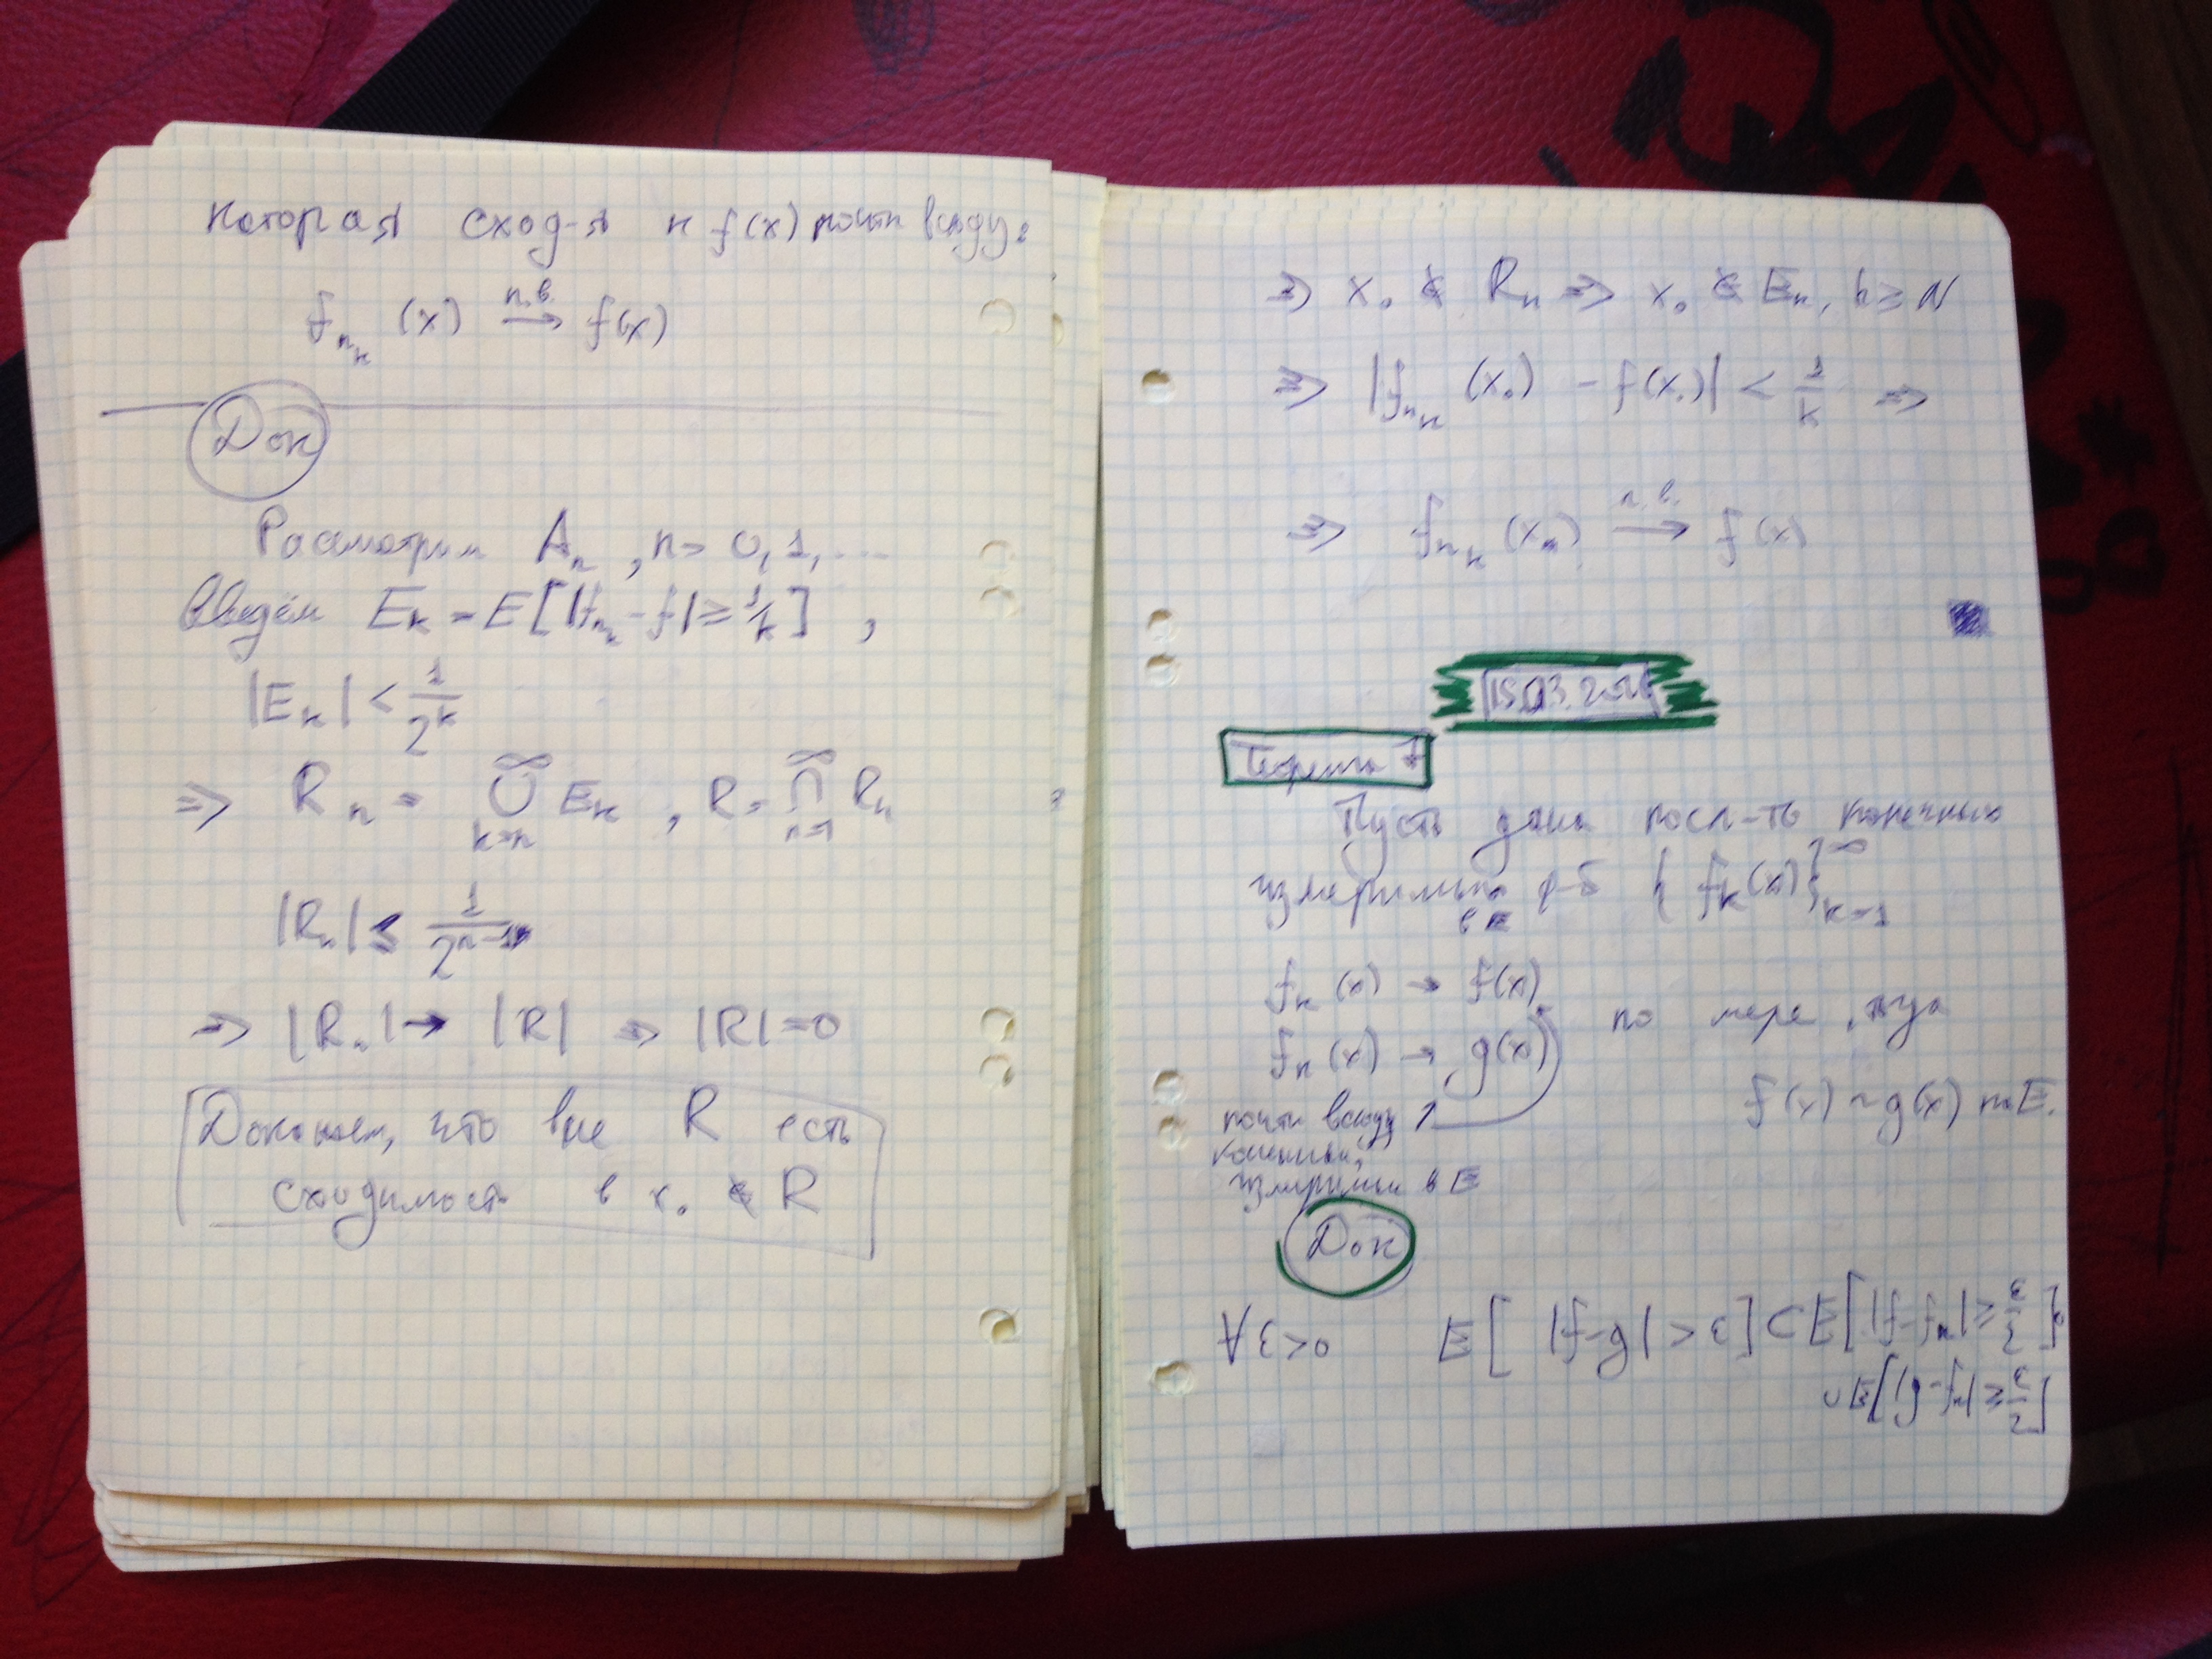 которая сход-я к f(x) почти всюду:
f_{n_k}(x) \xrightarrow{п.в.} f(x)
Док
Рассмотрим A_n, n = 0, 1, ...
Введём E_k = E[|f_{n_k} - f| ≥ 1/k],
|E_k| < 1/2^k
⇒ R_n = ∪_{k=n}^∞ E_k, R = ∩_{n=1}^∞ R_n
|R_n| ≤ 1/2^{n-1}
⇒ |R_n| → |R| ⇒ |R| = 0
Докажем, что вне R есть
сходимость в x_0 ∉ R
⇒ x_0 ∉ R_n ⇒ x_0 ∉ E_k, k ≥ N
⇒ |f_{n_k}(x_0) - f(x_0)| < 1/k ⇒
⇒ f_{n_k}(x) \xrightarrow{п.в.} f(x)
Теорема 7
Пусть дана посл-ть конечных
измеримых ф-й {f_k(x)}_{k=1}^∞
в E
f_k(x) → f(x)
по мере,
f_k(x) → g(x)
f(x) ~ g(x) на E.
почти всюду
конечные,
измеримы в E
Док
∀ε>0 E[|f-g| > ε] ⊂ E[|f-f_k| ≥ ε/2]
∪ E[|g-f_k| ≥ ε/2]